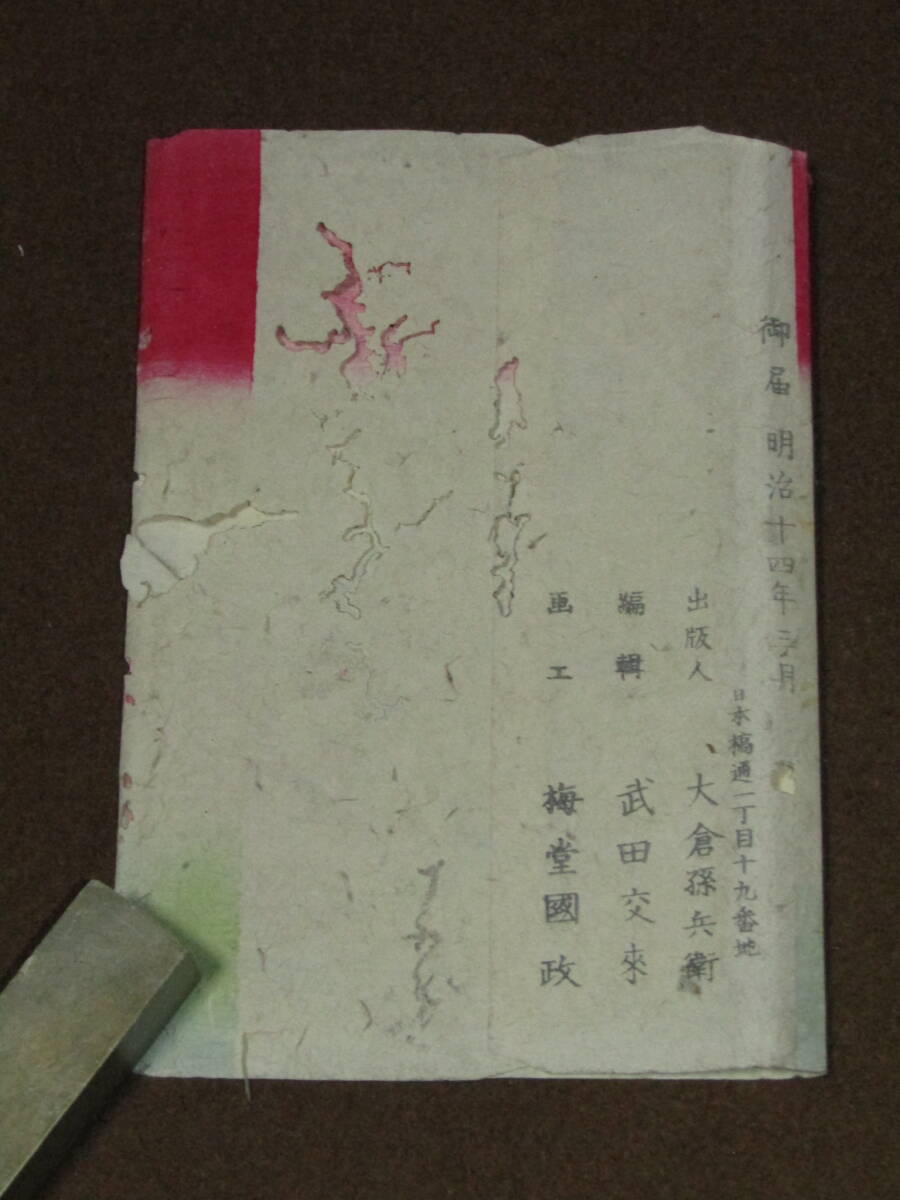 御届 明治十四年 月
日本橋通二丁目十九番地
出版人 大倉孫兵衛
編輯 武田交來
画工 梅堂國政